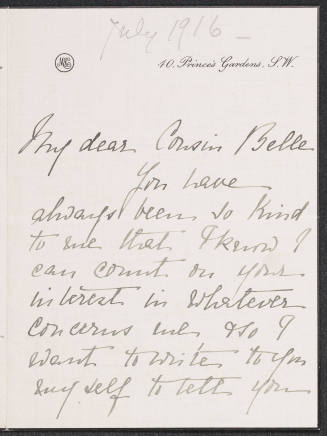 July 1916 -
40, Prince's Gardens, S.W.
My dear Cousin Belle
You have
always been so kind
to me that I know I
can count on your
interest in whatever
concerns me & so I
want to write to you
myself to tell you